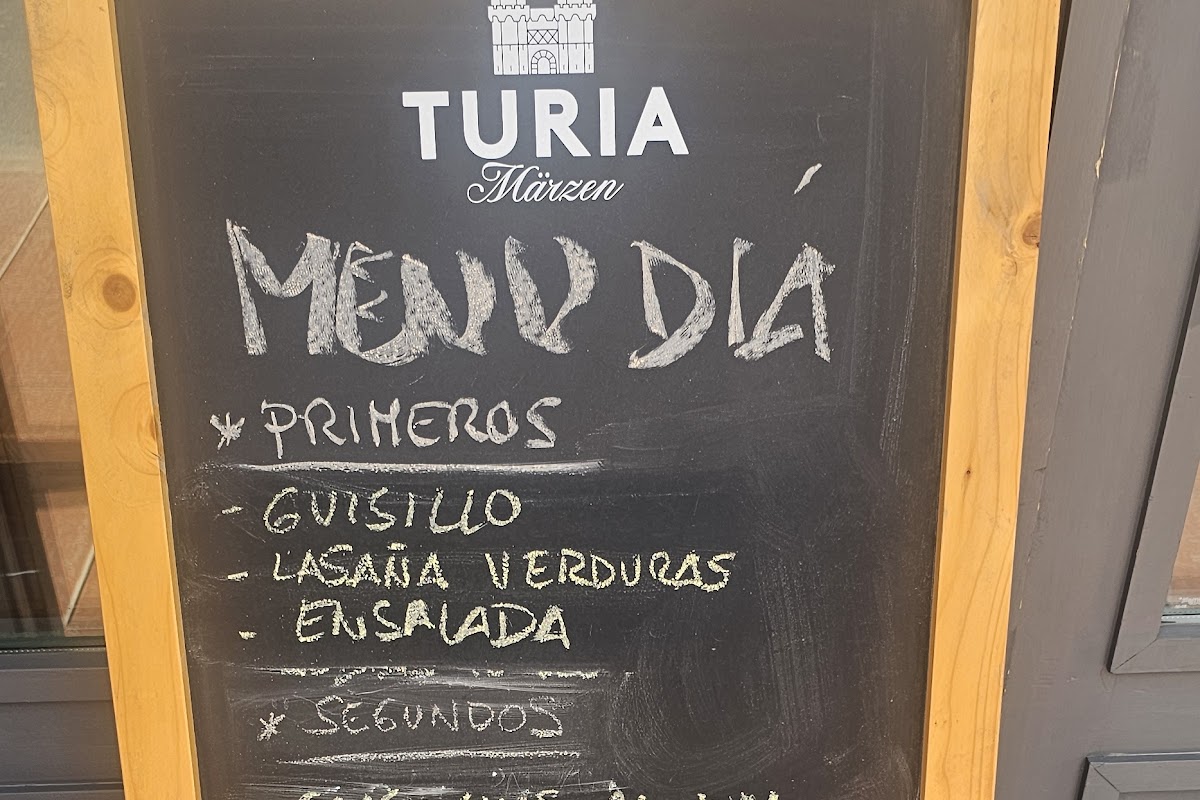 TURIA
Märzen
MENU DÍA
* PRIMEROS
- GUISILLO
- LASAÑA VERDURAS
- ENSALADA
* SEGUNDOS